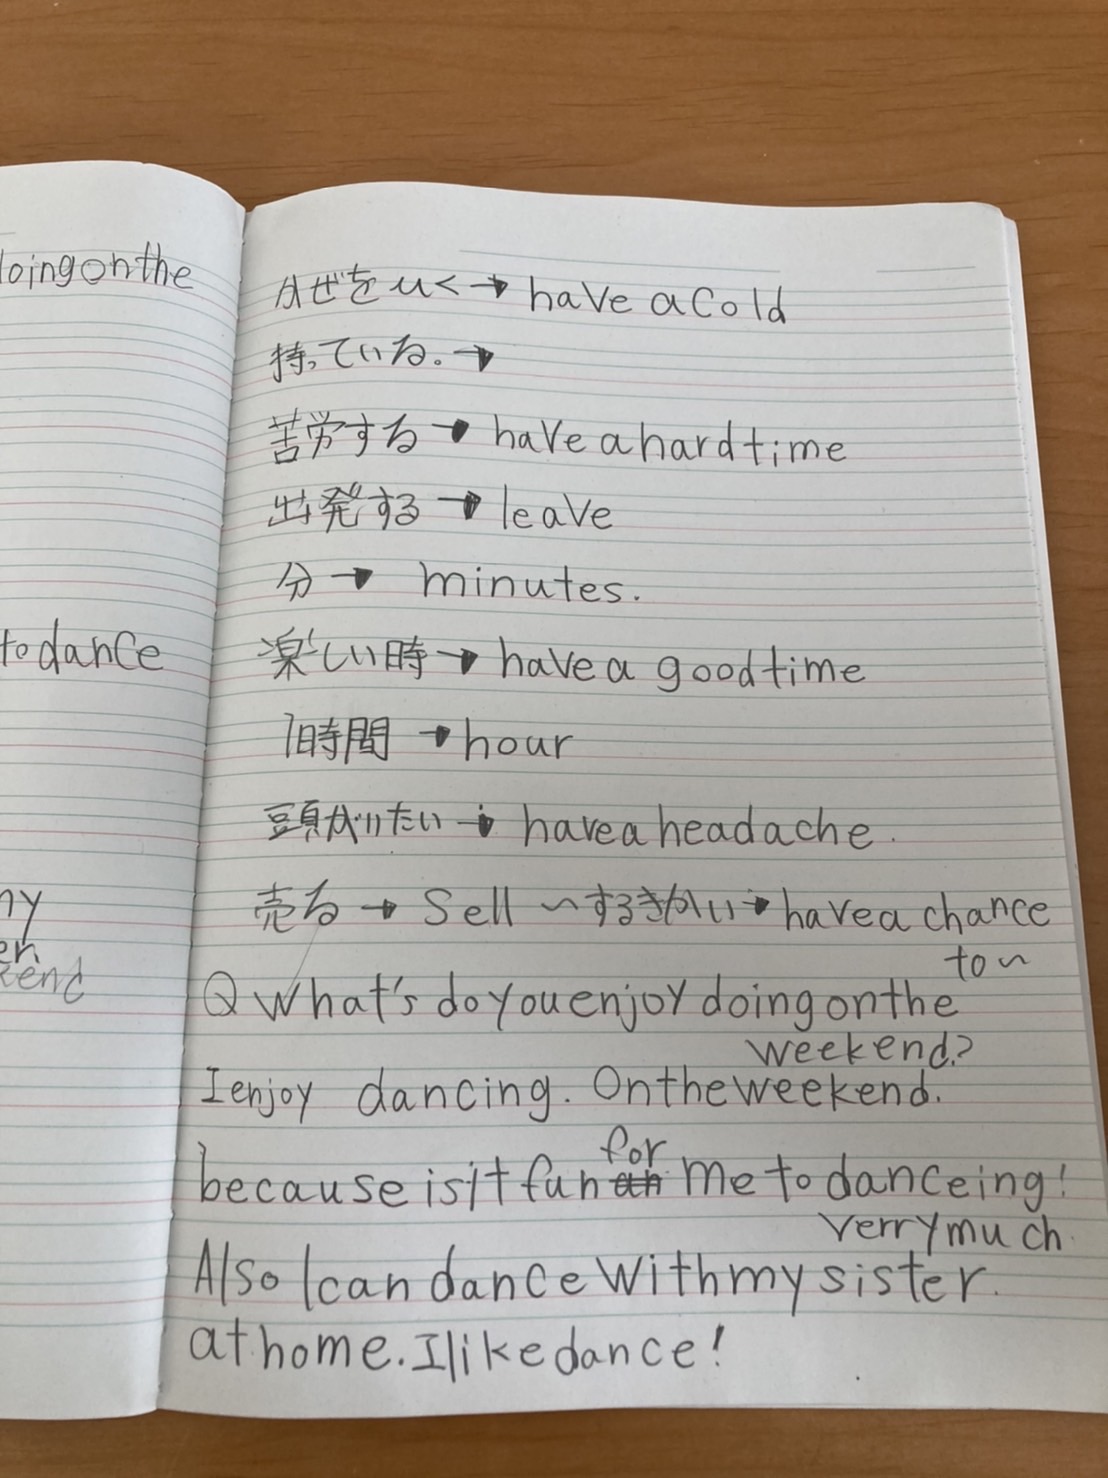 doing on the
to dance
かぜをひく→ have a cold
持っている。→
苦労する→ have a hard time
出発する→ leave
分→ minutes.
楽しい時→ have a good time
1時間→ hour
頭がいたい→ have a headache.
売る→ Sell 〜するきかい→ have a chance
to〜
Q What's do you enjoy doing on the
weekend?
I enjoy dancing. On the weekend.
because is it fun for me to danceing!
verry much
Also I can dance with my sister.
at home. I like dance!